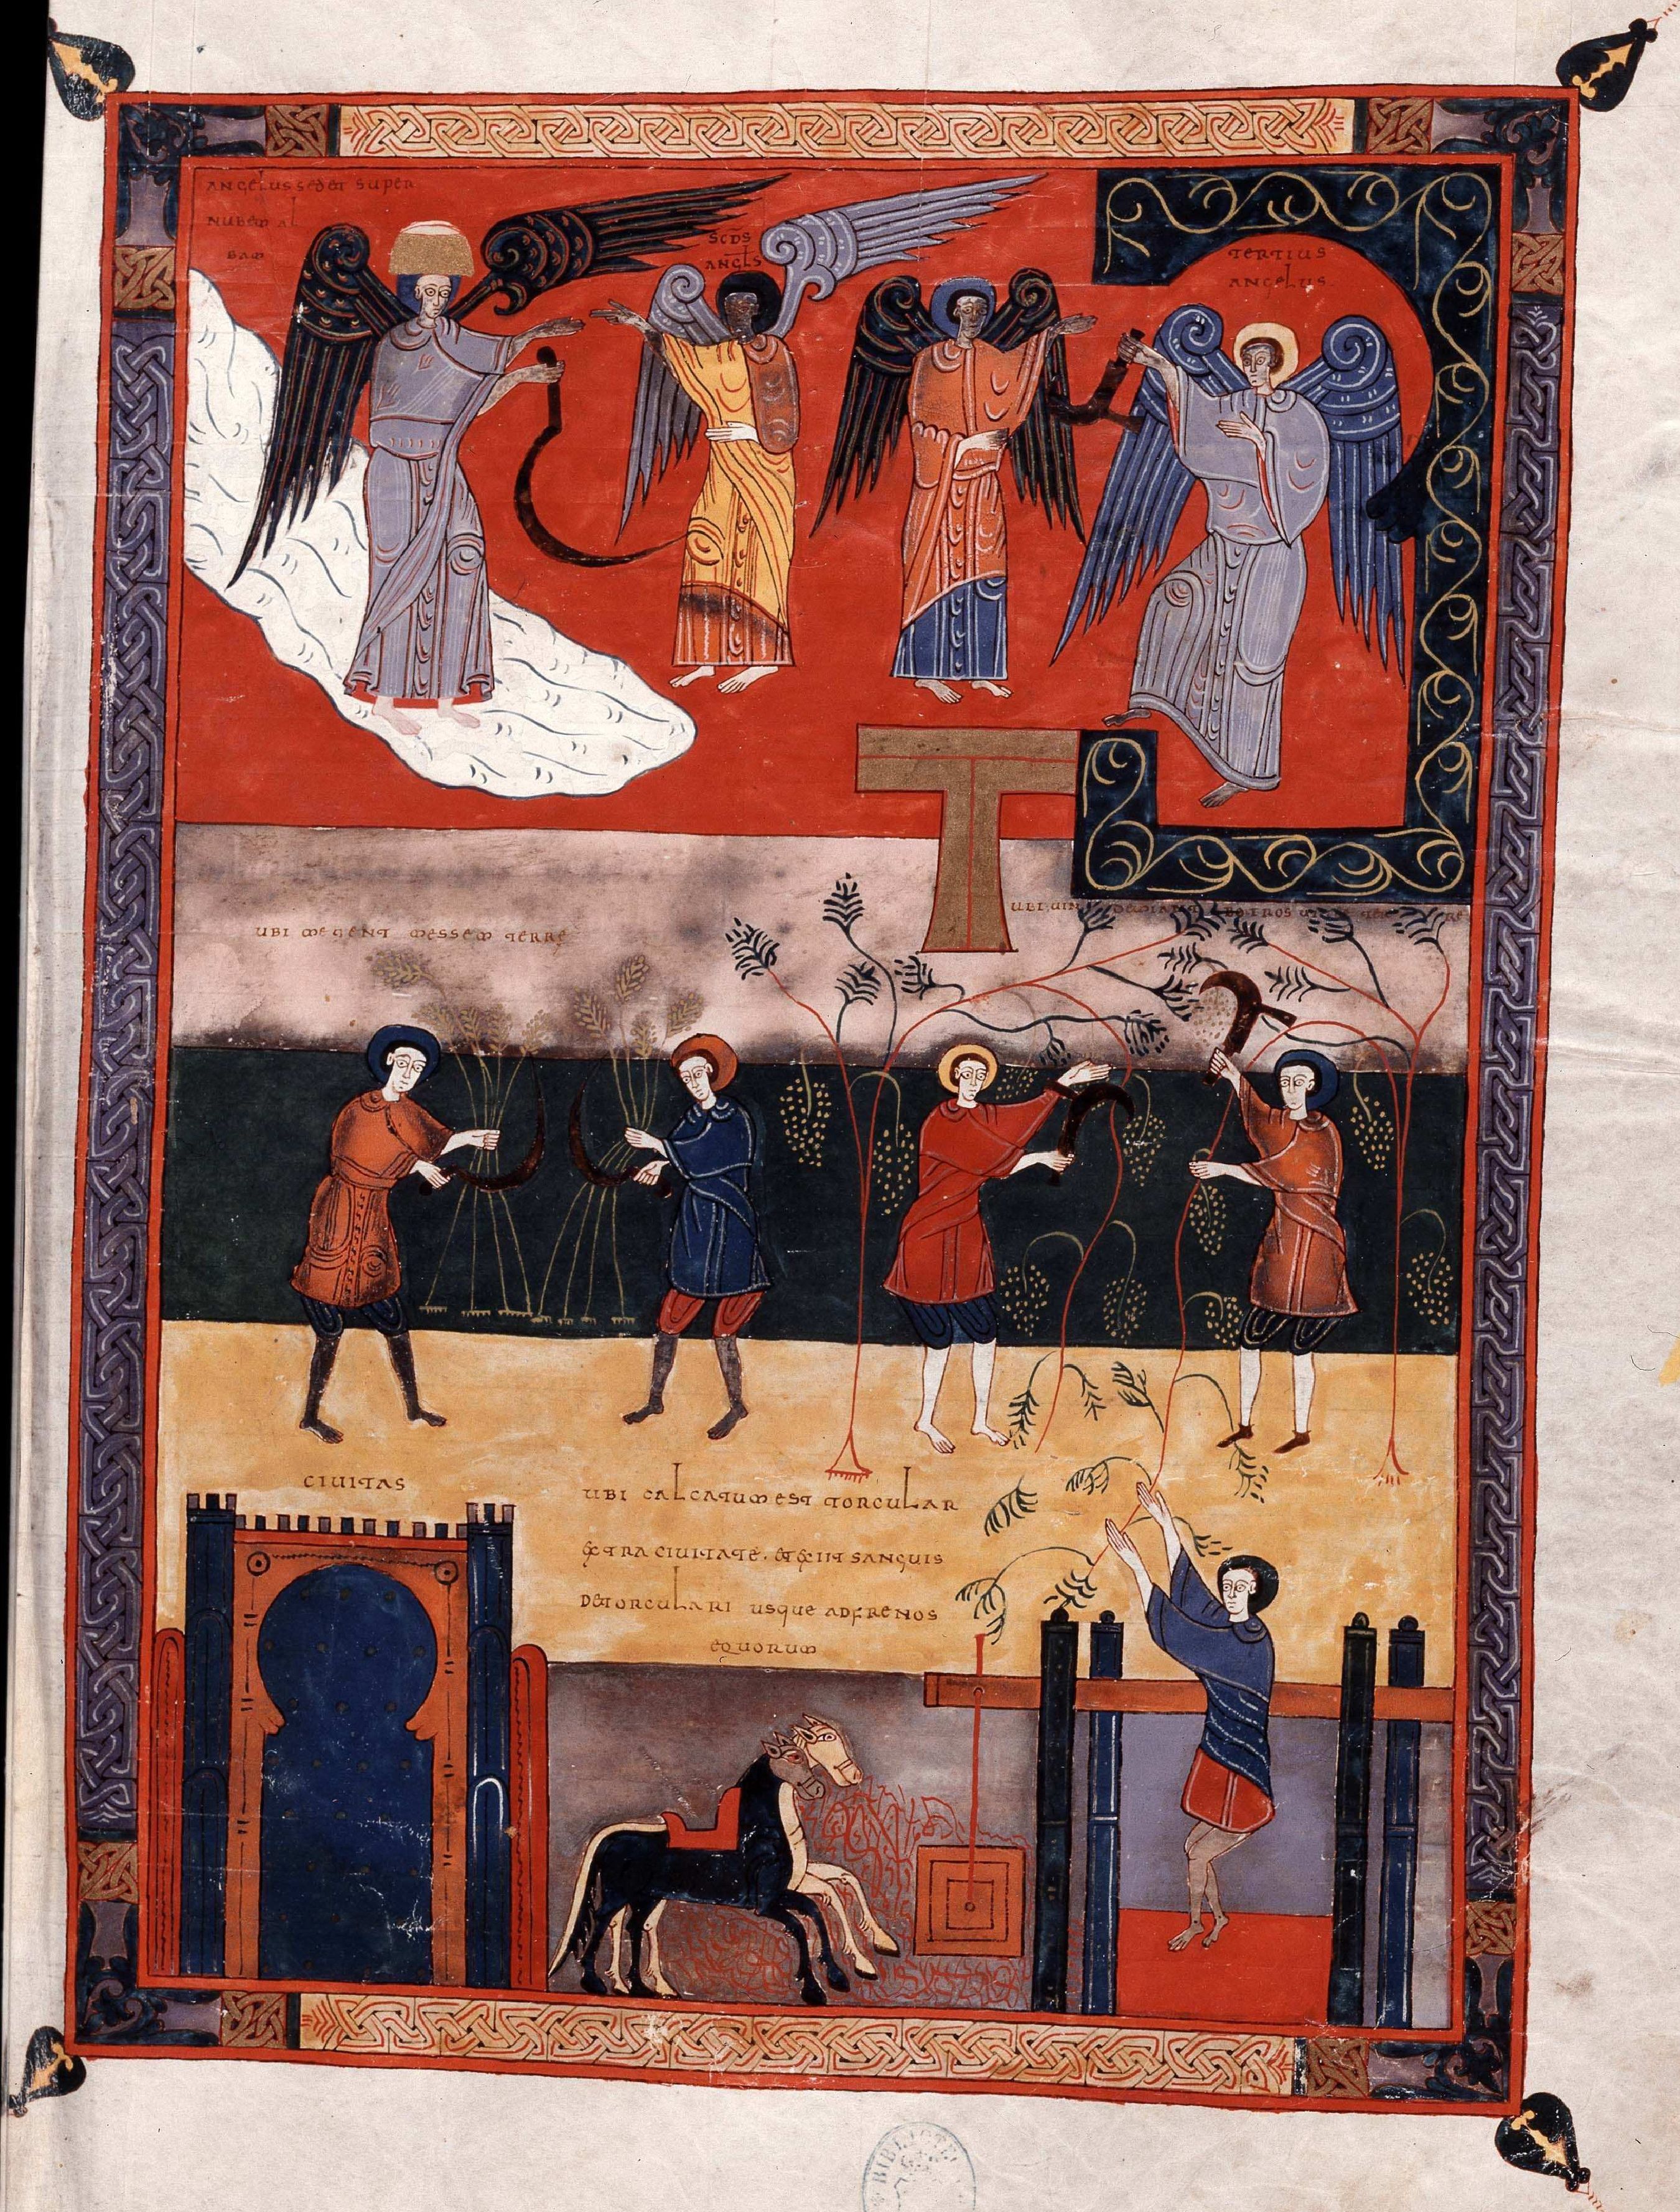 ANGELUS SEDET SUPER
NUBEM AL
BAM
SCDS
ANGLS
TERTIUS
ANGELUS
UBI METENT MESSEM TERRE
UBI UIN BOTROS
CIUITAS
UBI CALCATUM EST TORCULAR
EXTRA CIUITATĒ. ET EXIIT SANGUIS
DE TORCULARI USQUE AD FRENOS
EQUORUM
BIBLIOTE